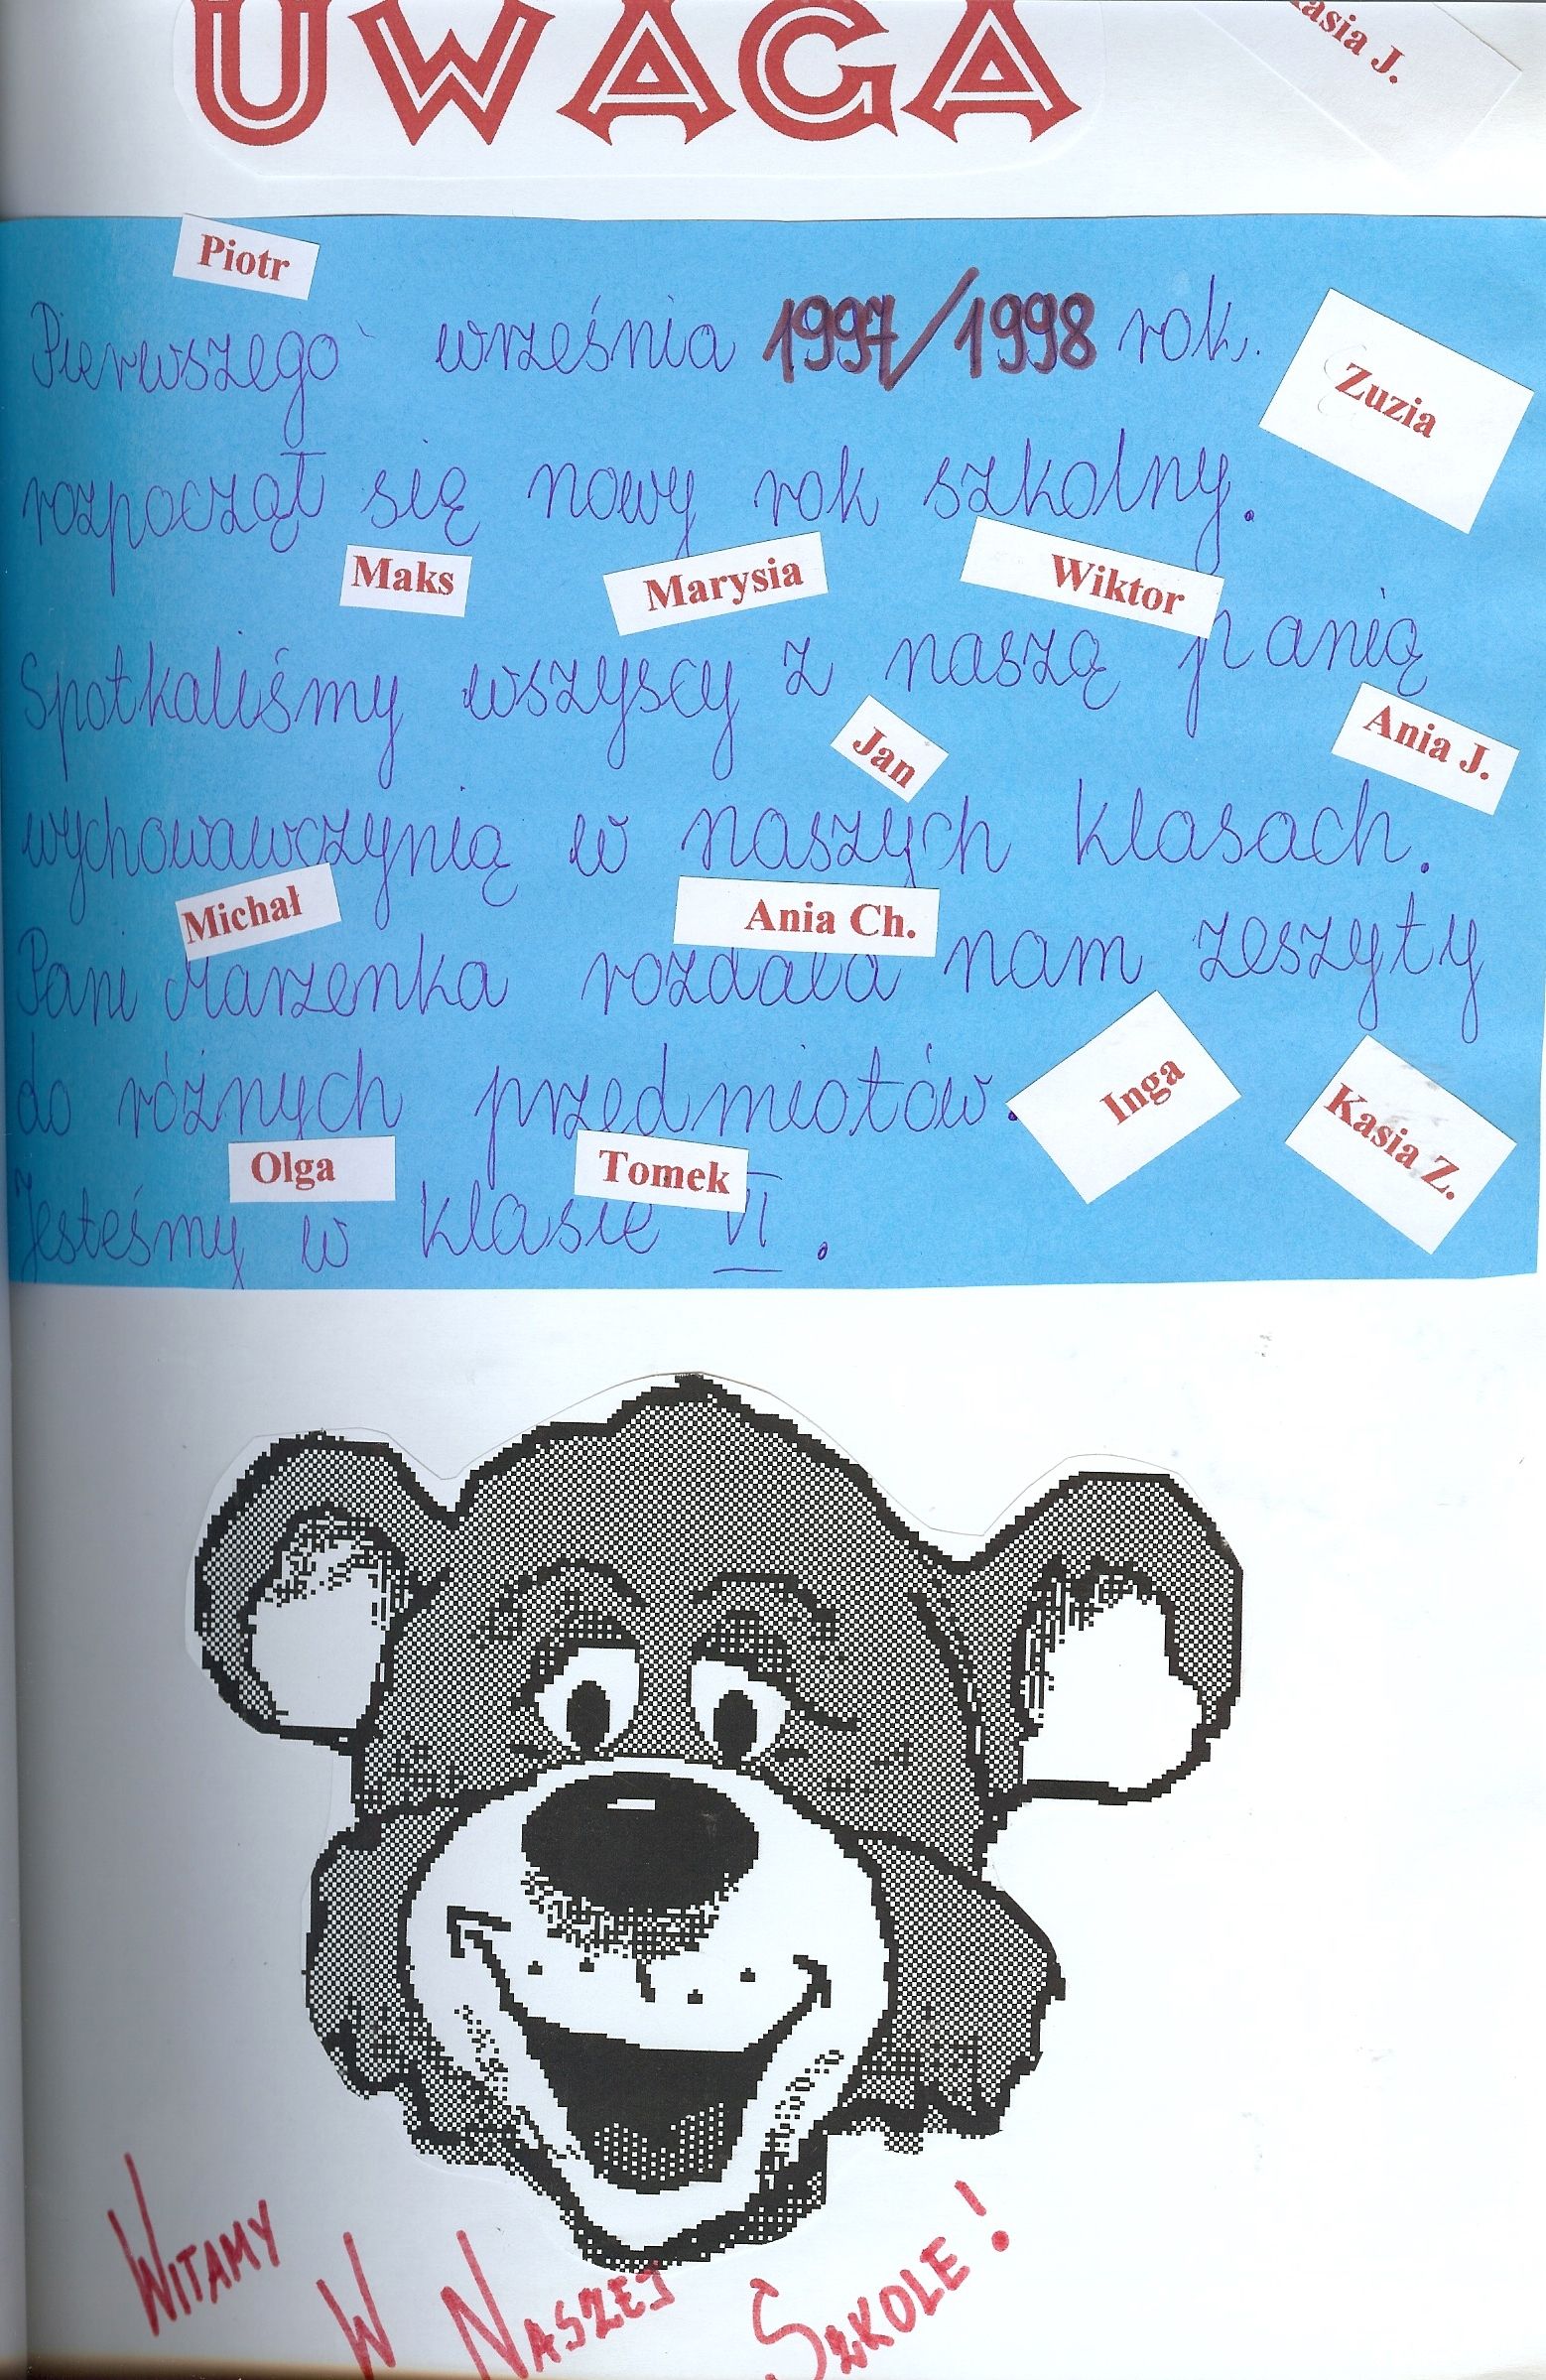 UWAGA
asia J.
Piotr
Pierwszego września 1997/1998 rok.
Zuzia
rozpoczął się nowy rok szkolny.
Maks Marysia Wiktor
Spotkaliśmy wszyscy z naszą panią
Jan Ania J.
wychowawczynią w naszych klasach.
Michał Ania Ch.
Pani Marzenka rozdała nam zeszyty
do różnych przedmiotów.
Inga Kasia Z.
Olga Tomek
Jesteśmy w klasie VI.
WITAMY
W NASZEJ SZKOLE!